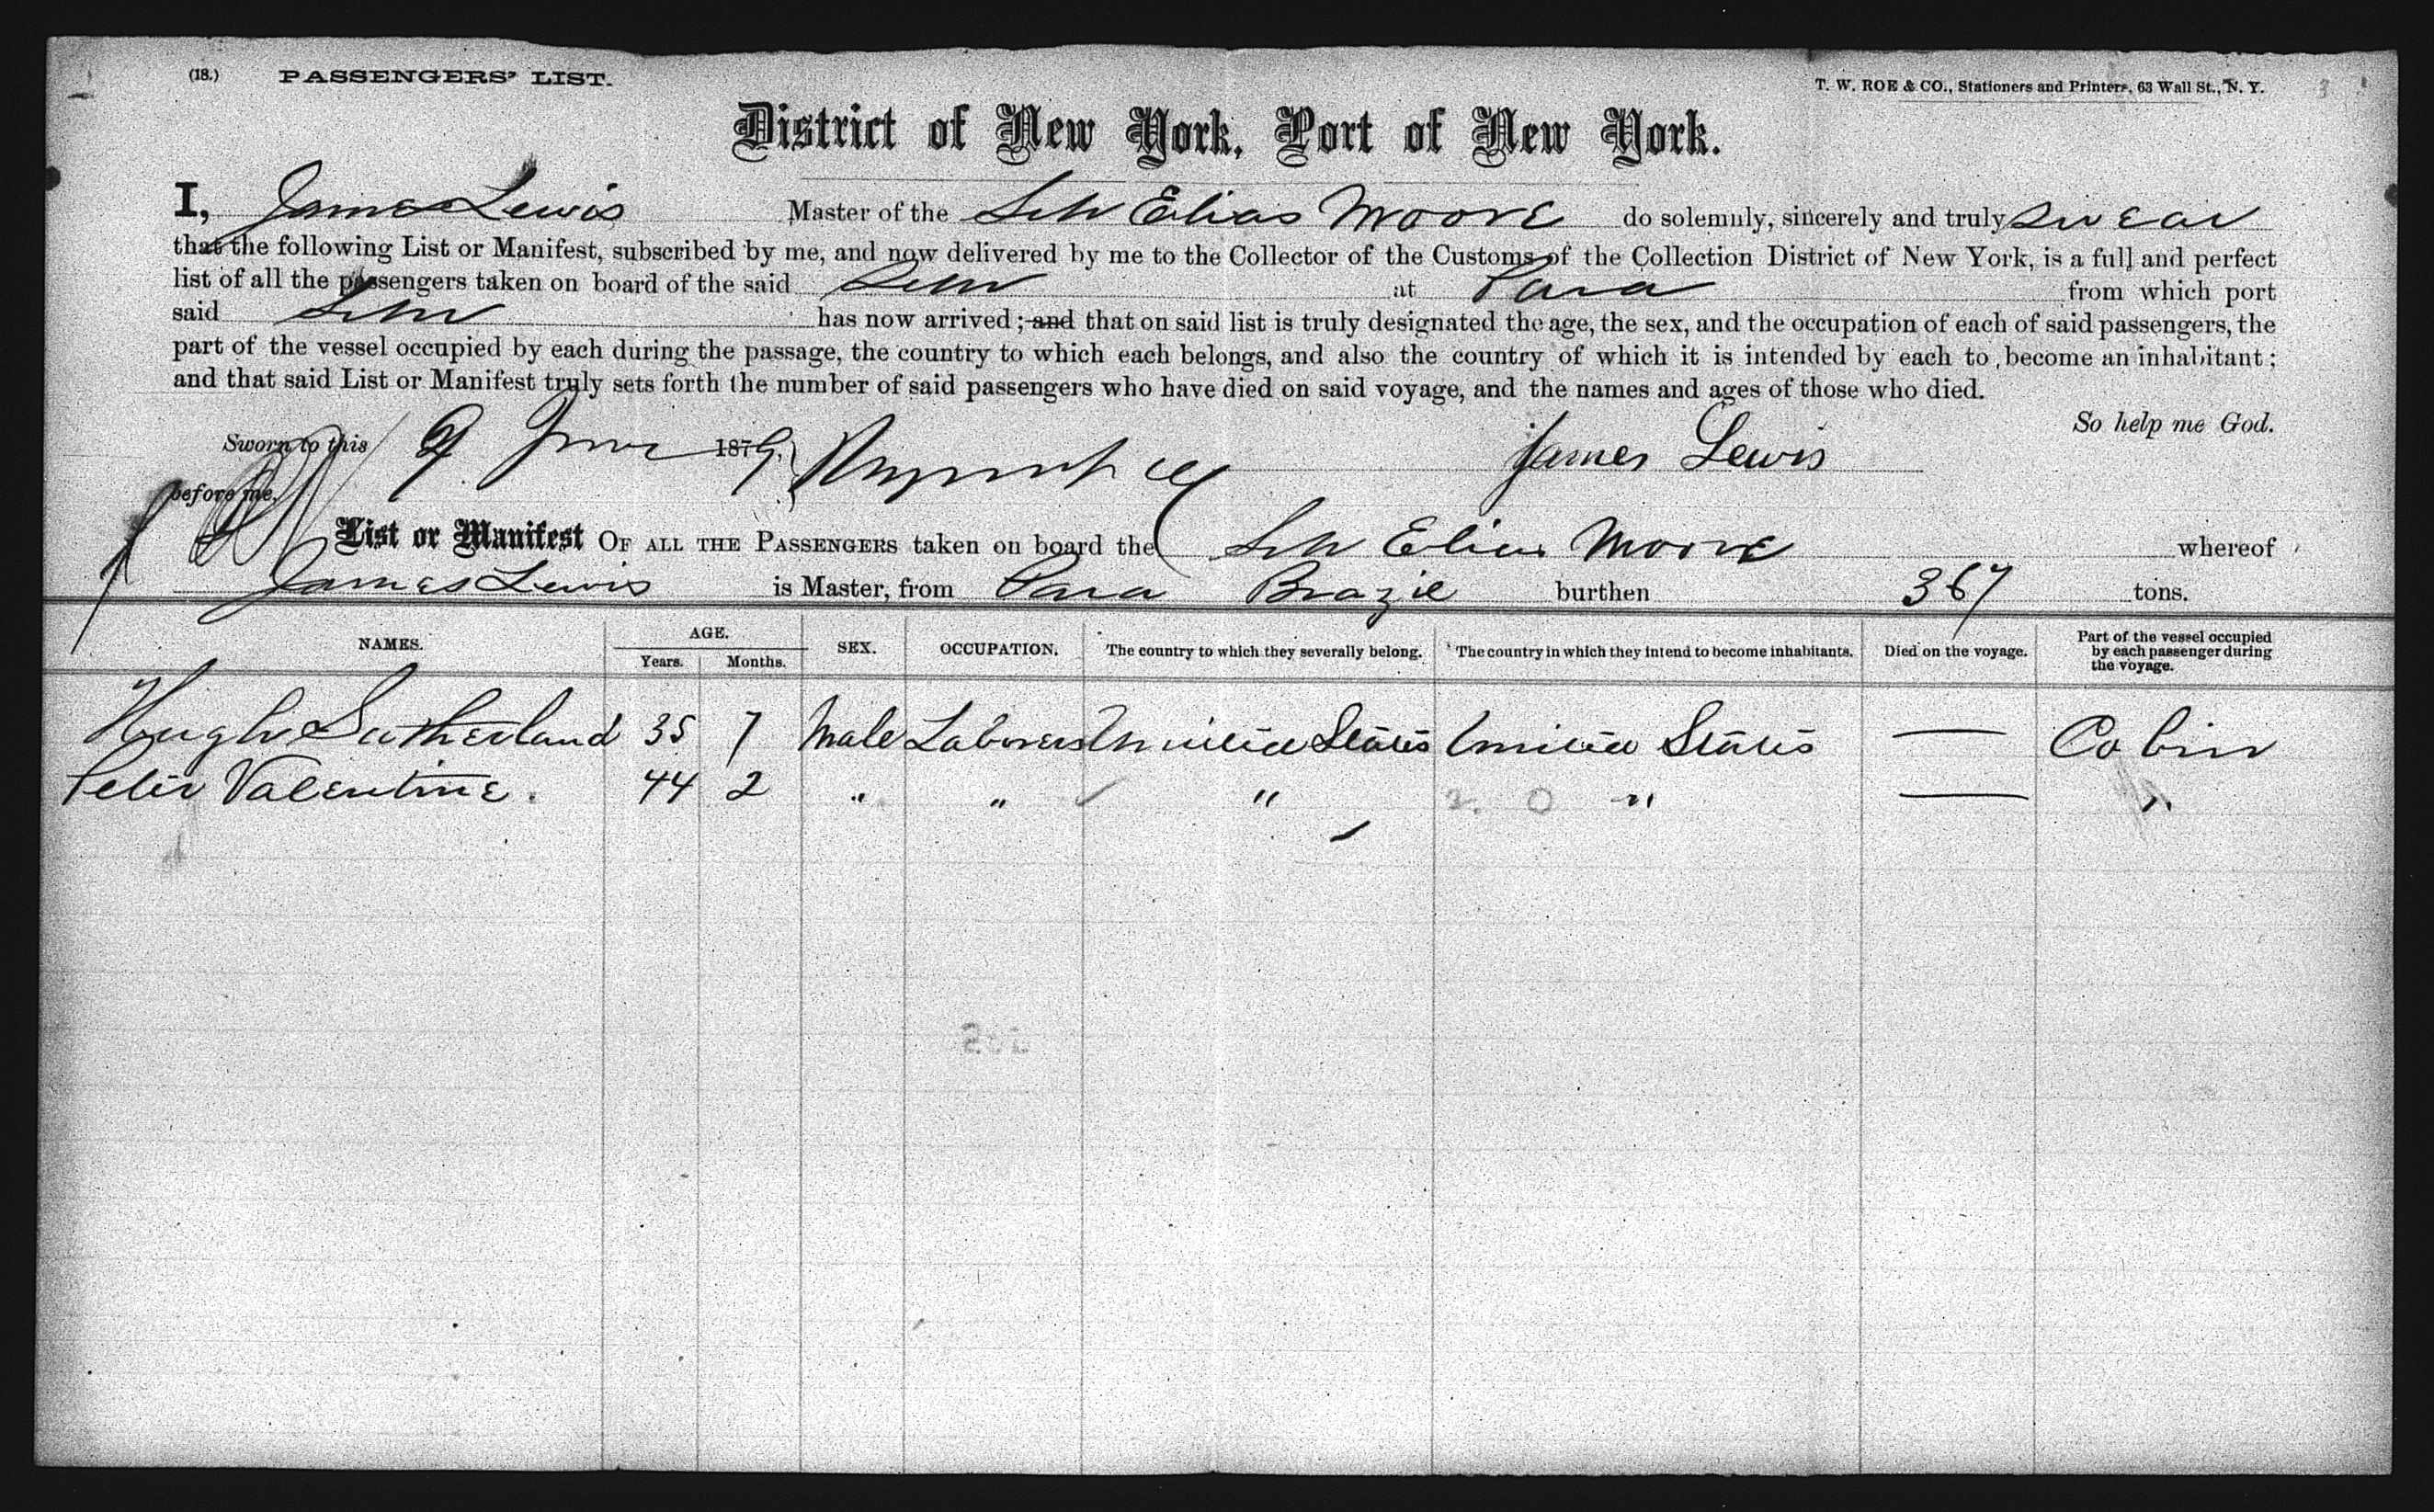 (18.) PASSENGERS' LIST. T. W. ROE & CO., Stationers and Printers, 63 Wall St., N. Y.
District of New York, Port of New York.
I, James Lewis Master of the Sch Elias Moore do solemnly, sincerely and truly swear
that the following List or Manifest, subscribed by me, and now delivered by me to the Collector of the Customs of the Collection District of New York, is a full and perfect
list of all the passengers taken on board of the said Schr at Para from which port
said Schr has now arrived; and that on said list is truly designated the age, the sex, and the occupation of each of said passengers, the
part of the vessel occupied by each during the passage, the country to which each belongs, and also the country of which it is intended by each to become an inhabitant;
and that said List or Manifest truly sets forth the number of said passengers who have died on said voyage, and the names and ages of those who died.
So help me God.
Sworn to this 9 June 1879, James Lewis
before me,
List or Manifest OF ALL THE PASSENGERS taken on board the Sch Elias Moore whereof
James Lewis is Master, from Para Brazil burthen 367 tons.
NAMES. AGE. Years. Months. SEX. OCCUPATION. The country to which they severally belong. The country in which they intend to become inhabitants. Died on the voyage. Part of the vessel occupied by each passenger during the voyage.
Hugh Sutherland 35 7 Male Laborers United States United States — Cabin
Peter Valentine. 44 2 " " " " — "